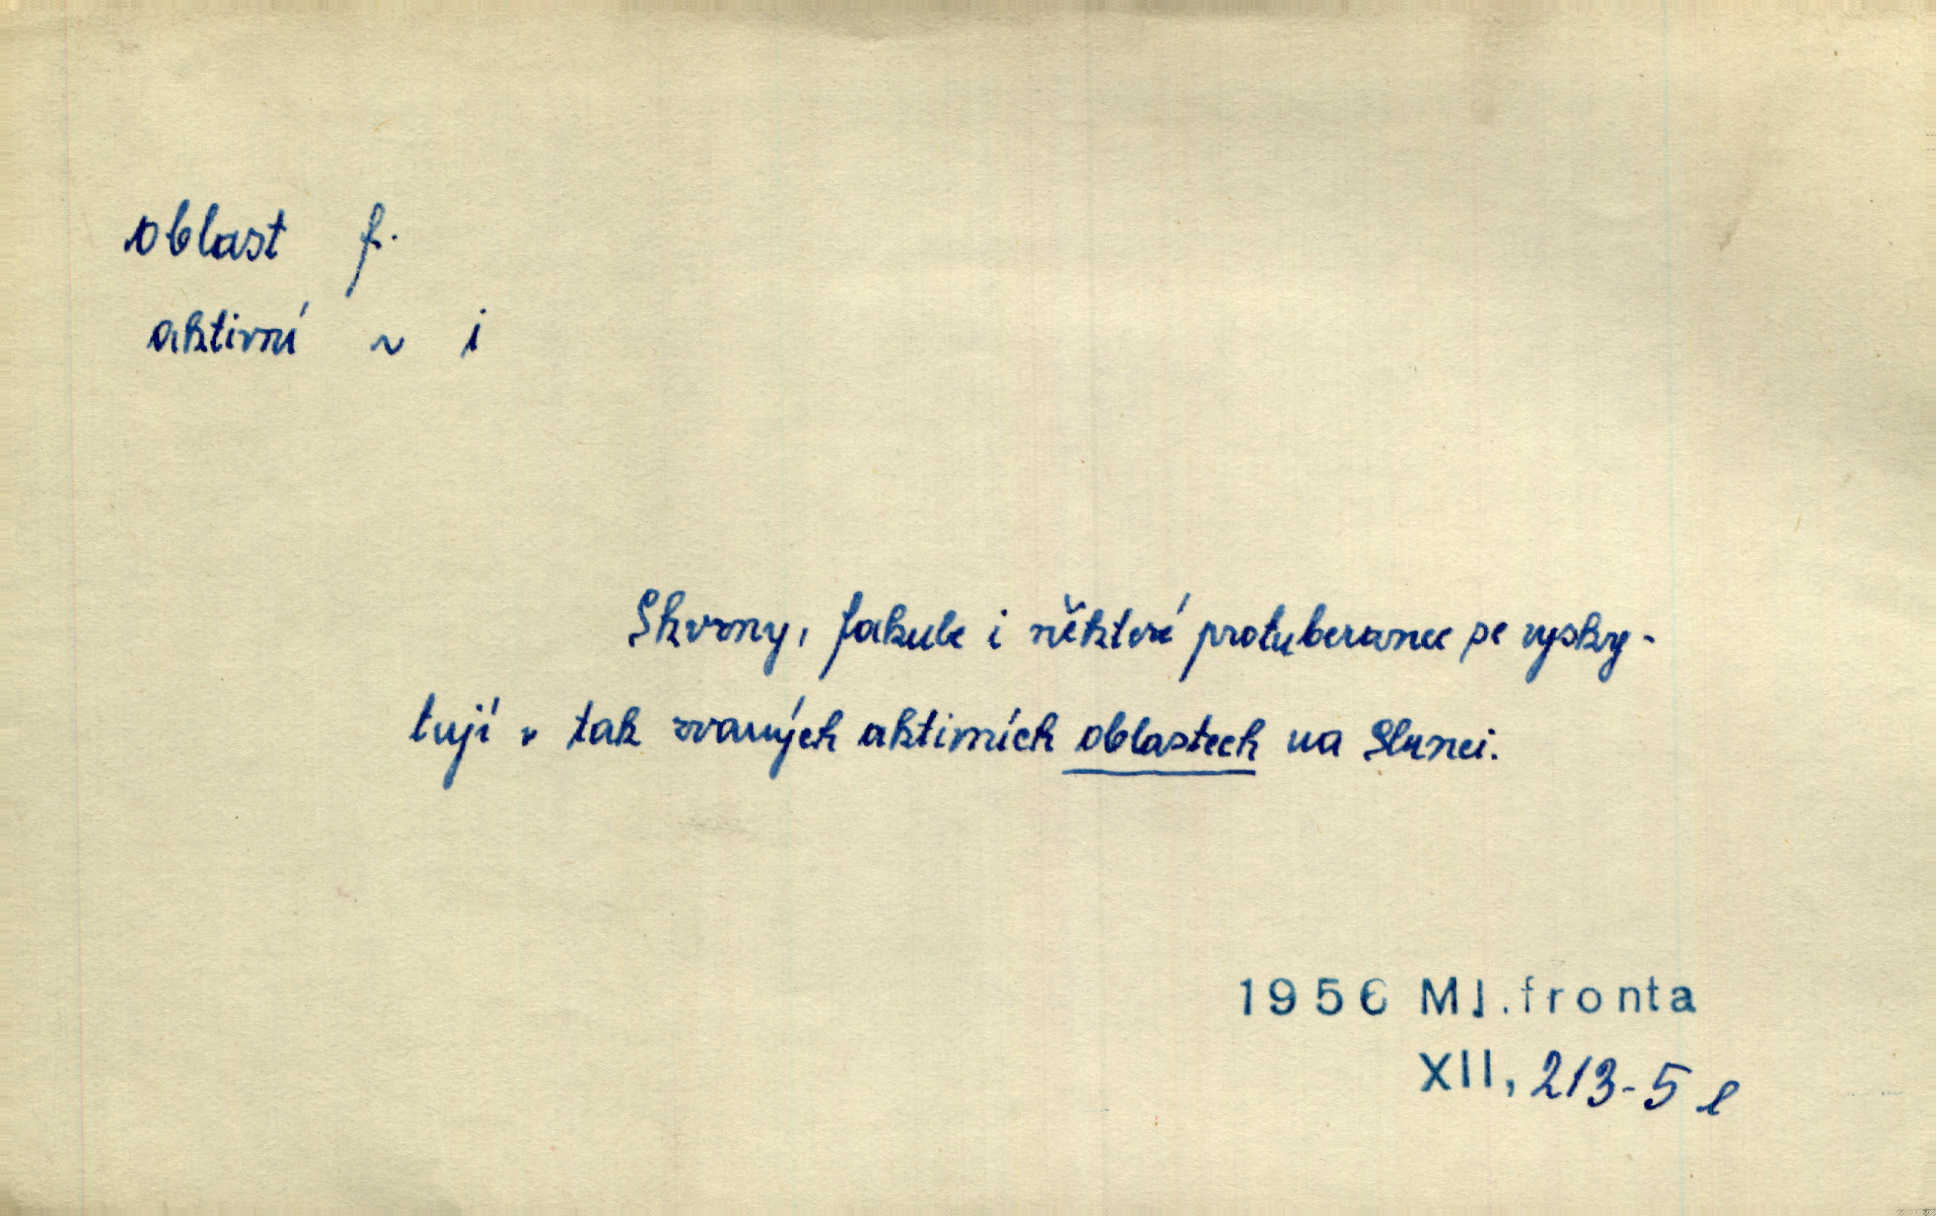 oblast f.
aktivní ~ i
Skvrny, fakule i některé protuberance se vysky-
tují v tak zvaných aktivních oblastech na Slunci.
1956 Ml.fronta
XII, 213-5 l